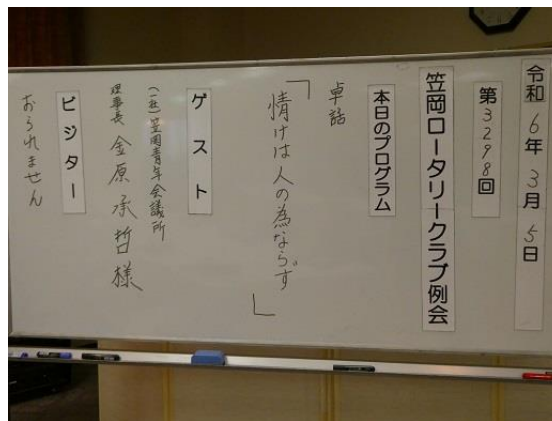 令和6年3月5日
第3298回
笠岡ロータリークラブ例会
本日のプログラム
卓話
「情けは人の為ならず」
ゲスト
(一社)笠岡青年会議所
理事長 金原承哲様
ビジター
おられません